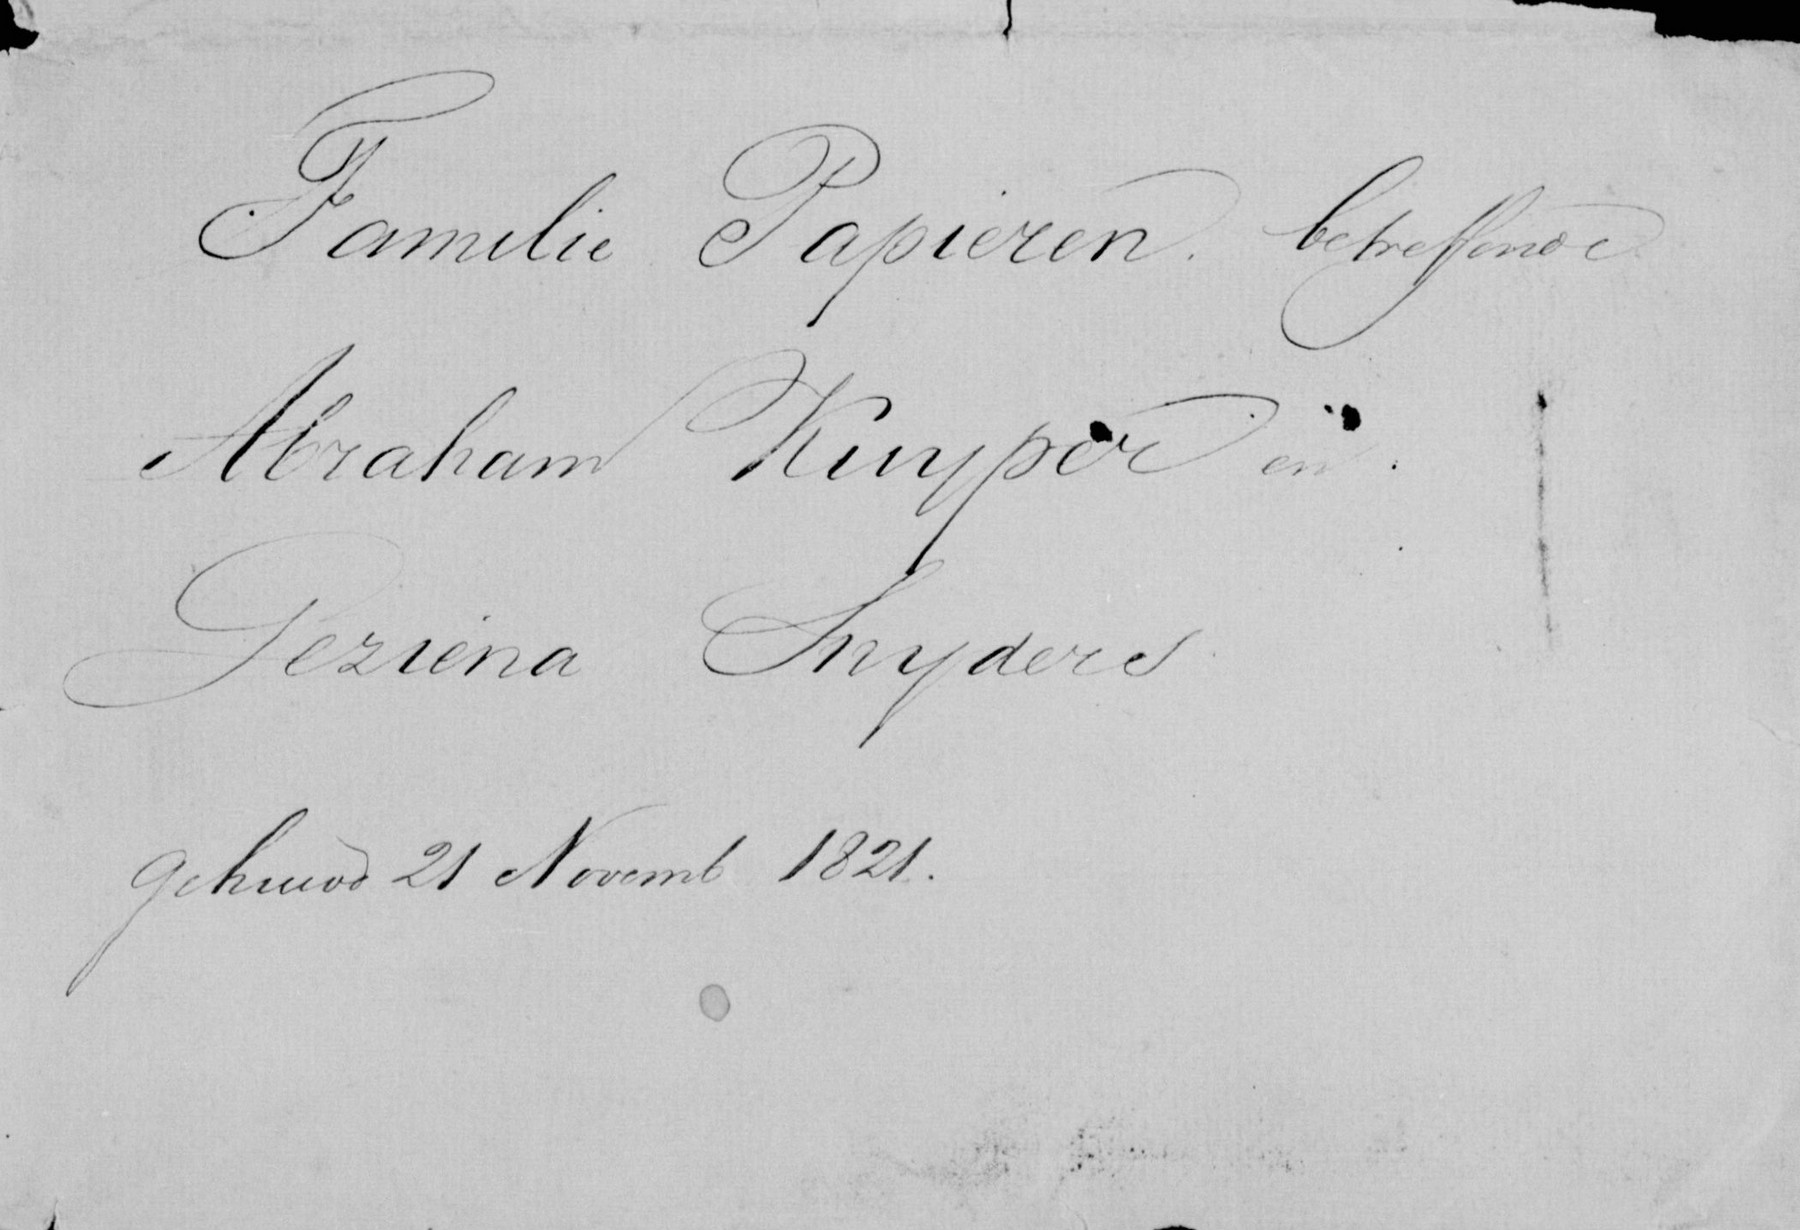 Familie Papieren betreffende
Abraham Kuyper en
Geziena Snyders
gehuwd 21 Novemb 1821.